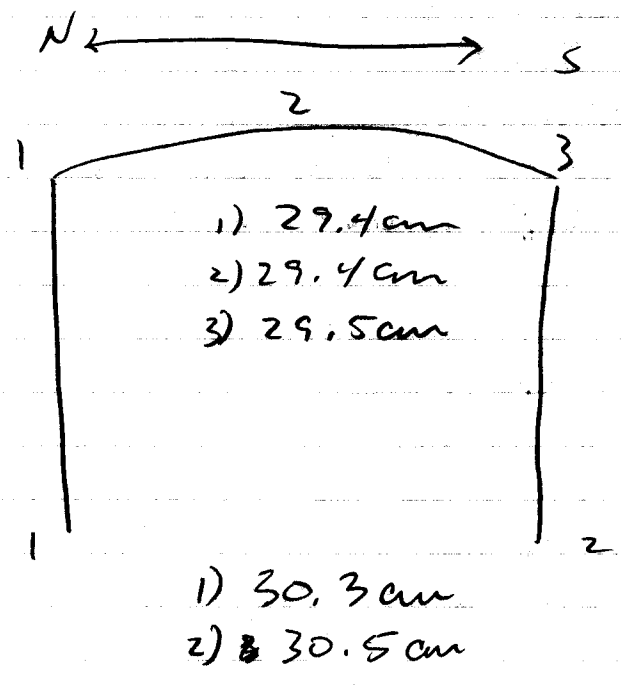 N S
2
1 3
1) 29.4cm
2) 29.4cm
3) 29.5cm
1 2
1) 30.3cm
2) 30.5cm